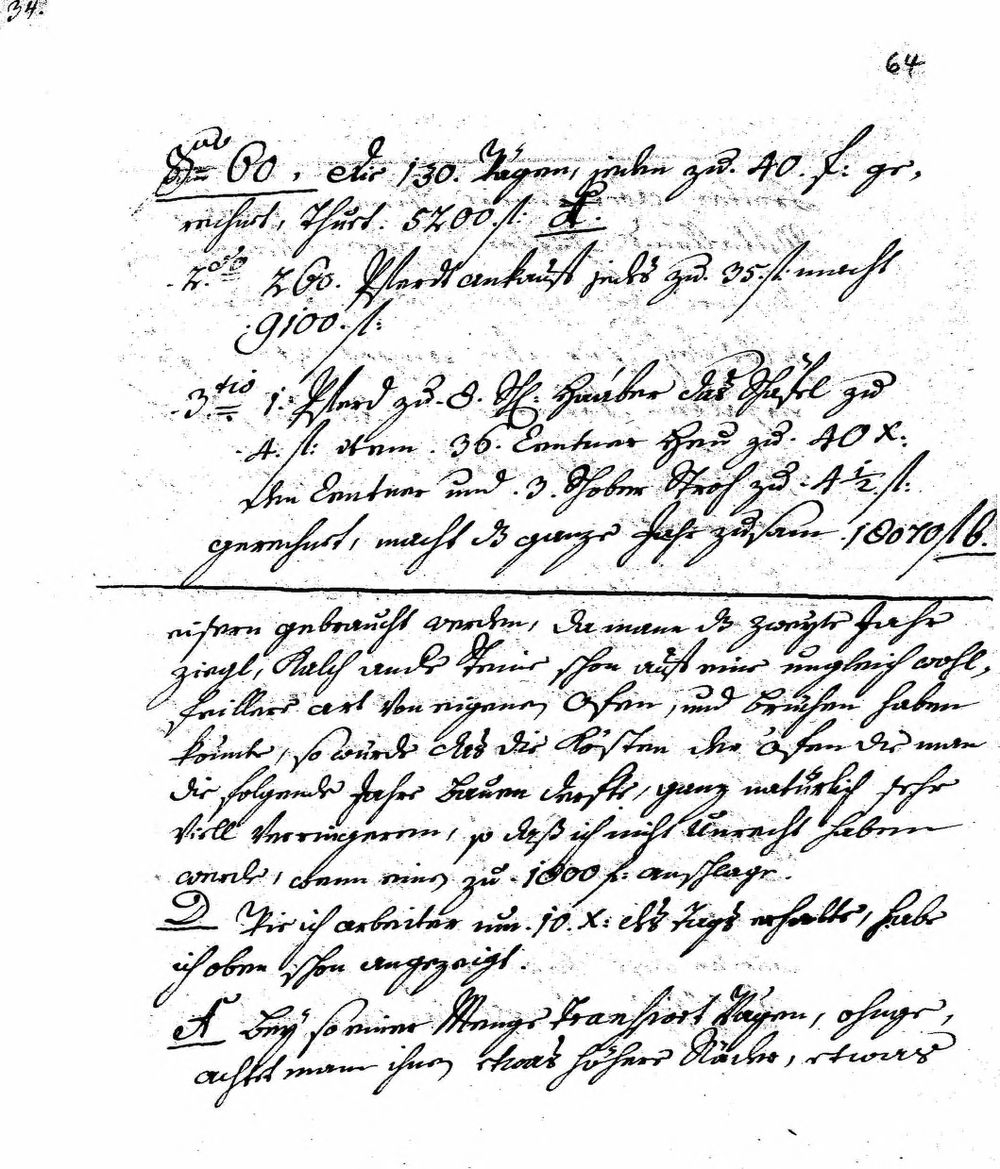 34.
64
Sub
N= 60, die 130. Wägen, jeden zu. 40. f: ge,
rechnet, thuet. 5200. fl: A.
2.do 260. Pferdt ankauf jedes zu. 35. fl: macht
9100. fl:
3tio 1. Pferd zu. 8. Sch: Haaber das Schäfel zu
4. fl: item. 36. Centner Heu zu. 40 x:
den Centner und. 3. Schober Stroh zu. 4 1/2. fl:
gerechnet, macht ds ganze Jahr zusam. 18070 fl b.
eisern gebraucht werden, da mann ds zweyte Jahr
ziegl, Kalch ande Steine schon auf eine ungleich wohl,
feillere art von eigenen Ofen, und brüchen haben
könnte, so wurde das die Kösten der Öfen die man
die folgende Jahre bauen derfte, ganz natürlich sehr
viell verringeren, so daß ich nicht Unrecht haben
wurde, wenn einen zu. 1800 f: anschlage.
D Wie ich arbeiter um. 10. x: des Tags erhalte, habe
ich oben schon angezeigt.
A bey so einer Menge Transport Wägen, ohnge,
achtet mann ihnen etwas höhere Räder, etwas